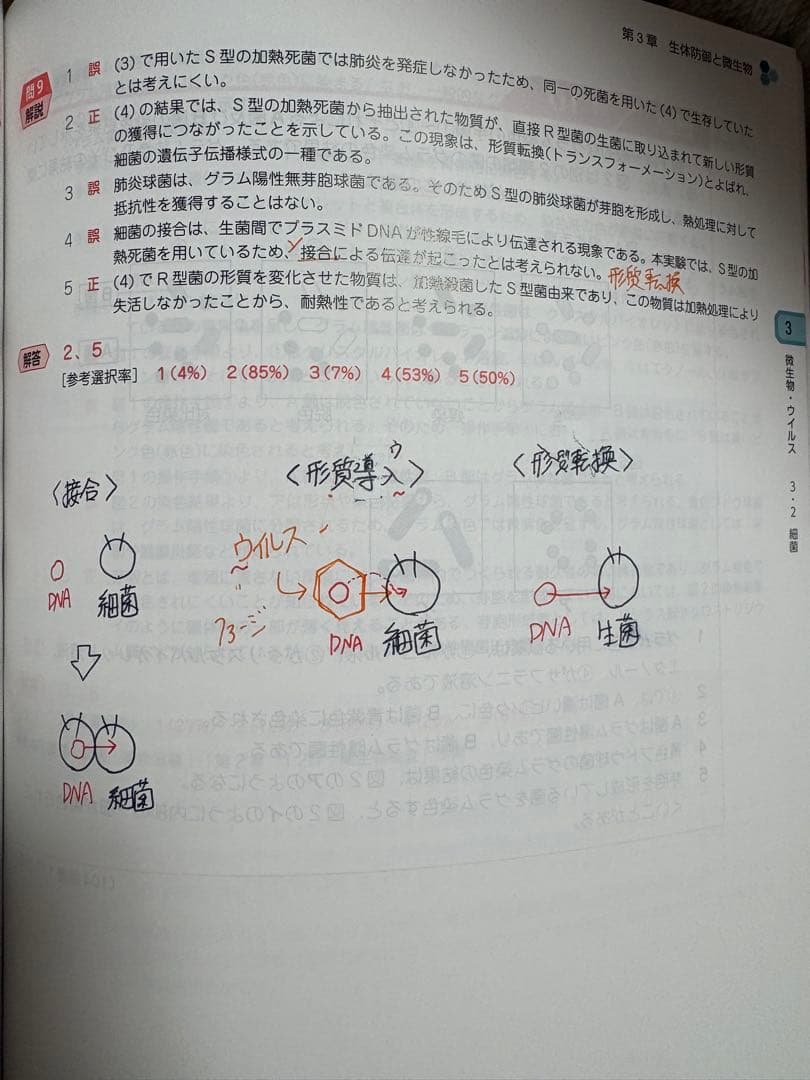 第3章 生体防御と微生物
問9
解説
1 誤 (3)で用いたS型の加熱死菌では肺炎を発症しなかったため、同一の死菌を用いた(4)で生存していた
とは考えにくい。
2 正 (4)の結果では、S型の加熱死菌から抽出された物質が、直接R型菌の生菌に取り込まれて新しい形質
の獲得につながったことを示している。この現象は、形質転換(トランスフォーメーション)とよばれ、
細菌の遺伝子伝播様式の一種である。
3 誤 肺炎球菌は、グラム陽性無芽胞球菌である。そのためS型の肺炎球菌が芽胞を形成し、熱処理に対して
抵抗性を獲得することはない。
4 誤 細菌の接合は、生菌間でプラスミドDNAが性線毛により伝達される現象である。本実験では、S型の加
熱死菌を用いているため、接合による伝達が起こったとは考えられない。形質転換
5 正 (4)でR型菌の形質を変化させた物質は、加熱殺菌したS型菌由来であり、この物質は加熱処理により
失活しなかったことから、耐熱性であると考えられる。
解答 2、5
[参考選択率] 1(4%) 2(85%) 3(7%) 4(53%) 5(50%)
3
微生物・ウイルス 3・2 細菌
〈接合〉
DNA 細菌
DNA 細菌
ウ
〈形質導入〉
ウイルス
ファージ
DNA 細菌
〈形質転換〉
DNA 生菌